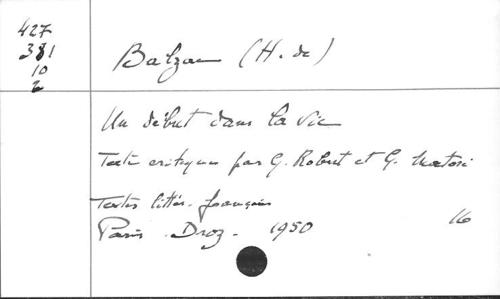 427
381
10
2
Balzac (H. de)
Un début dans la vie
Texte critique par G. Robert et G. Matoré
Textes littér. français
Paris. Droz. 1950
16